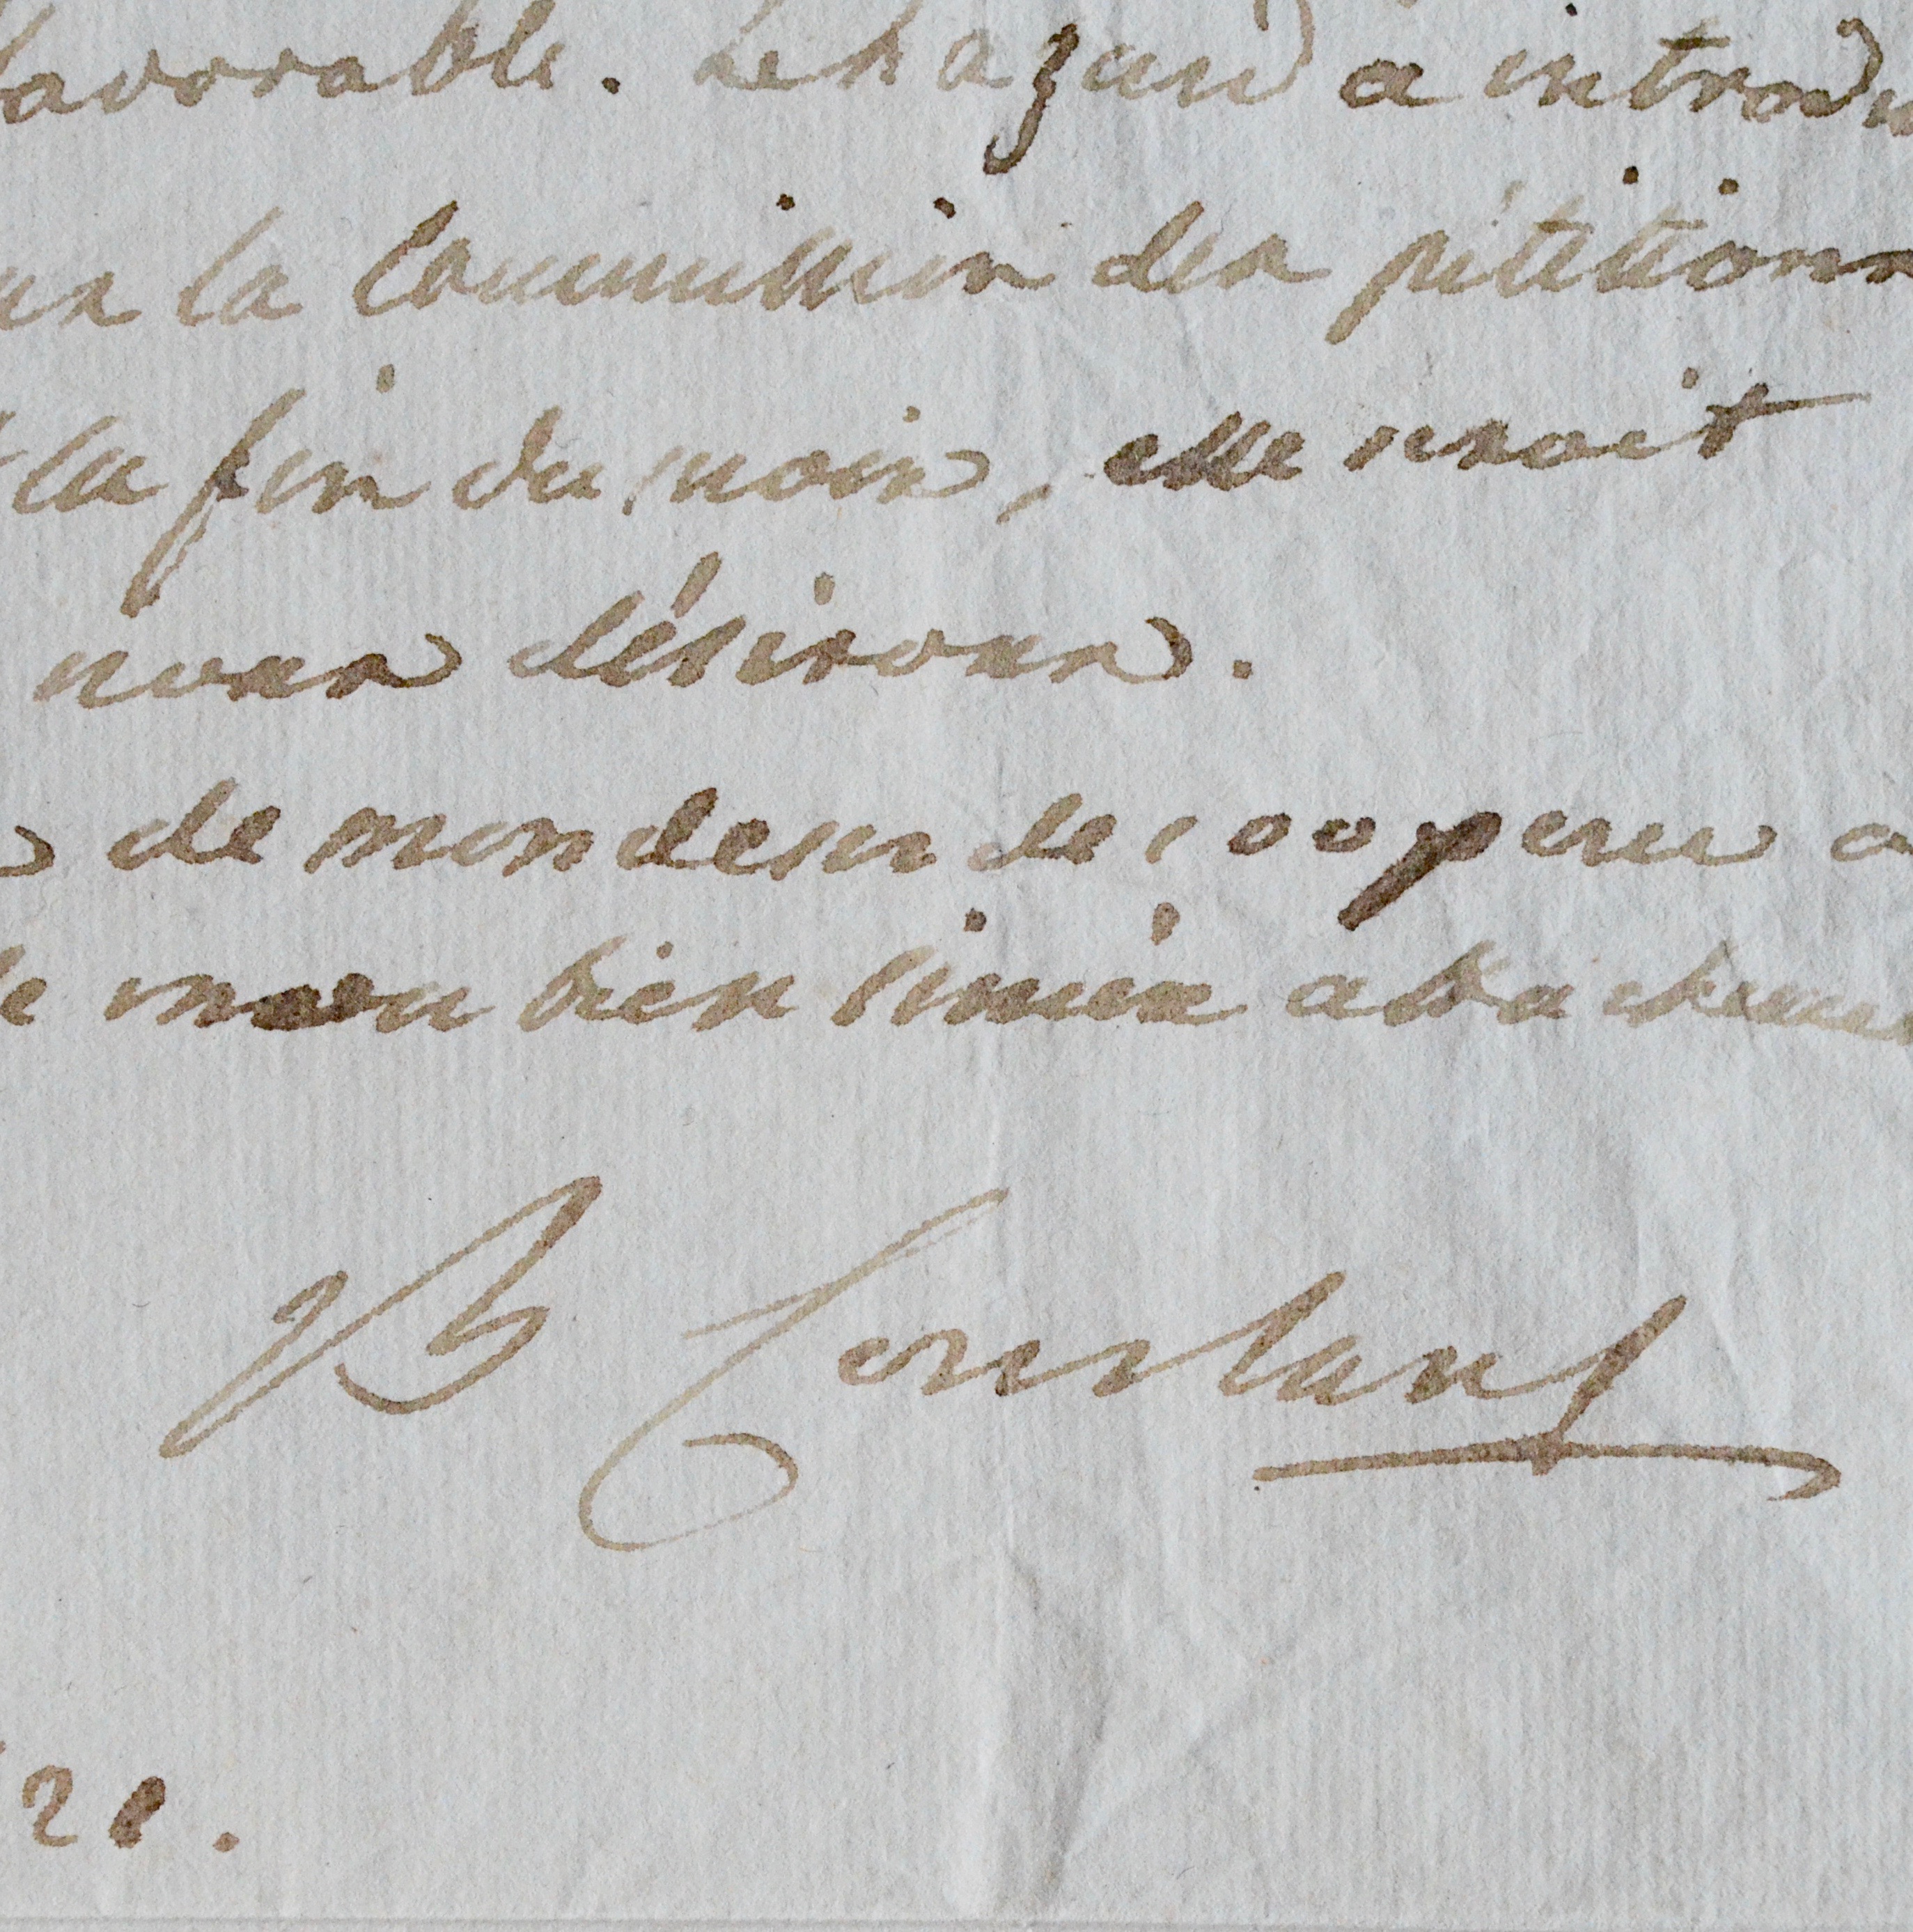 favorable. Le hazard a introdu
la Commission des pétitions
la fin du mois, elle seroit
nous désirons.
de mon desir de coopérer a
mon bien sincère attachemen
B Constant